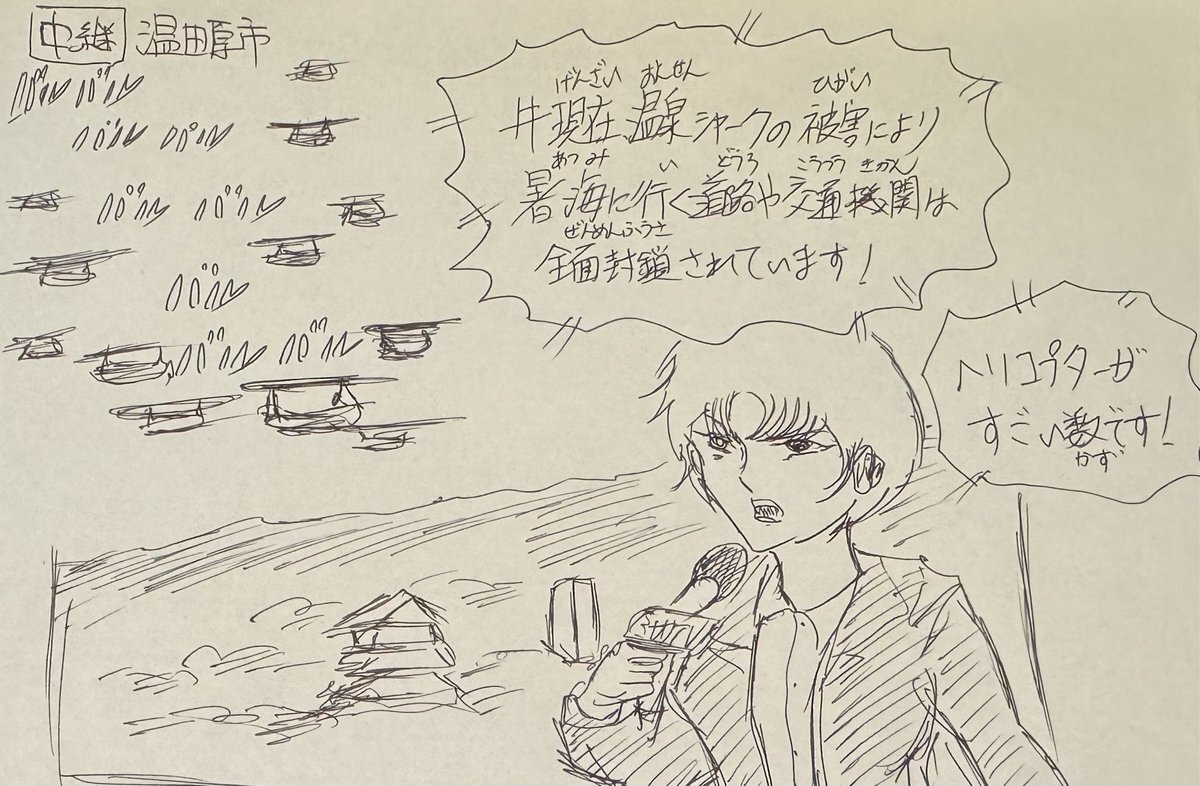 中継 温田原市
バル バル
バル バル
バル バル
バル
バル バル
げんざい おんせん ひがい
#現在、温泉シャークの被害により
あつみ い どうろ こうつう きかん
暑海に行く道路や交通機関は
ぜんめんふうさ
全面封鎖されています!
ヘリコプターが
すごい数です!
かず